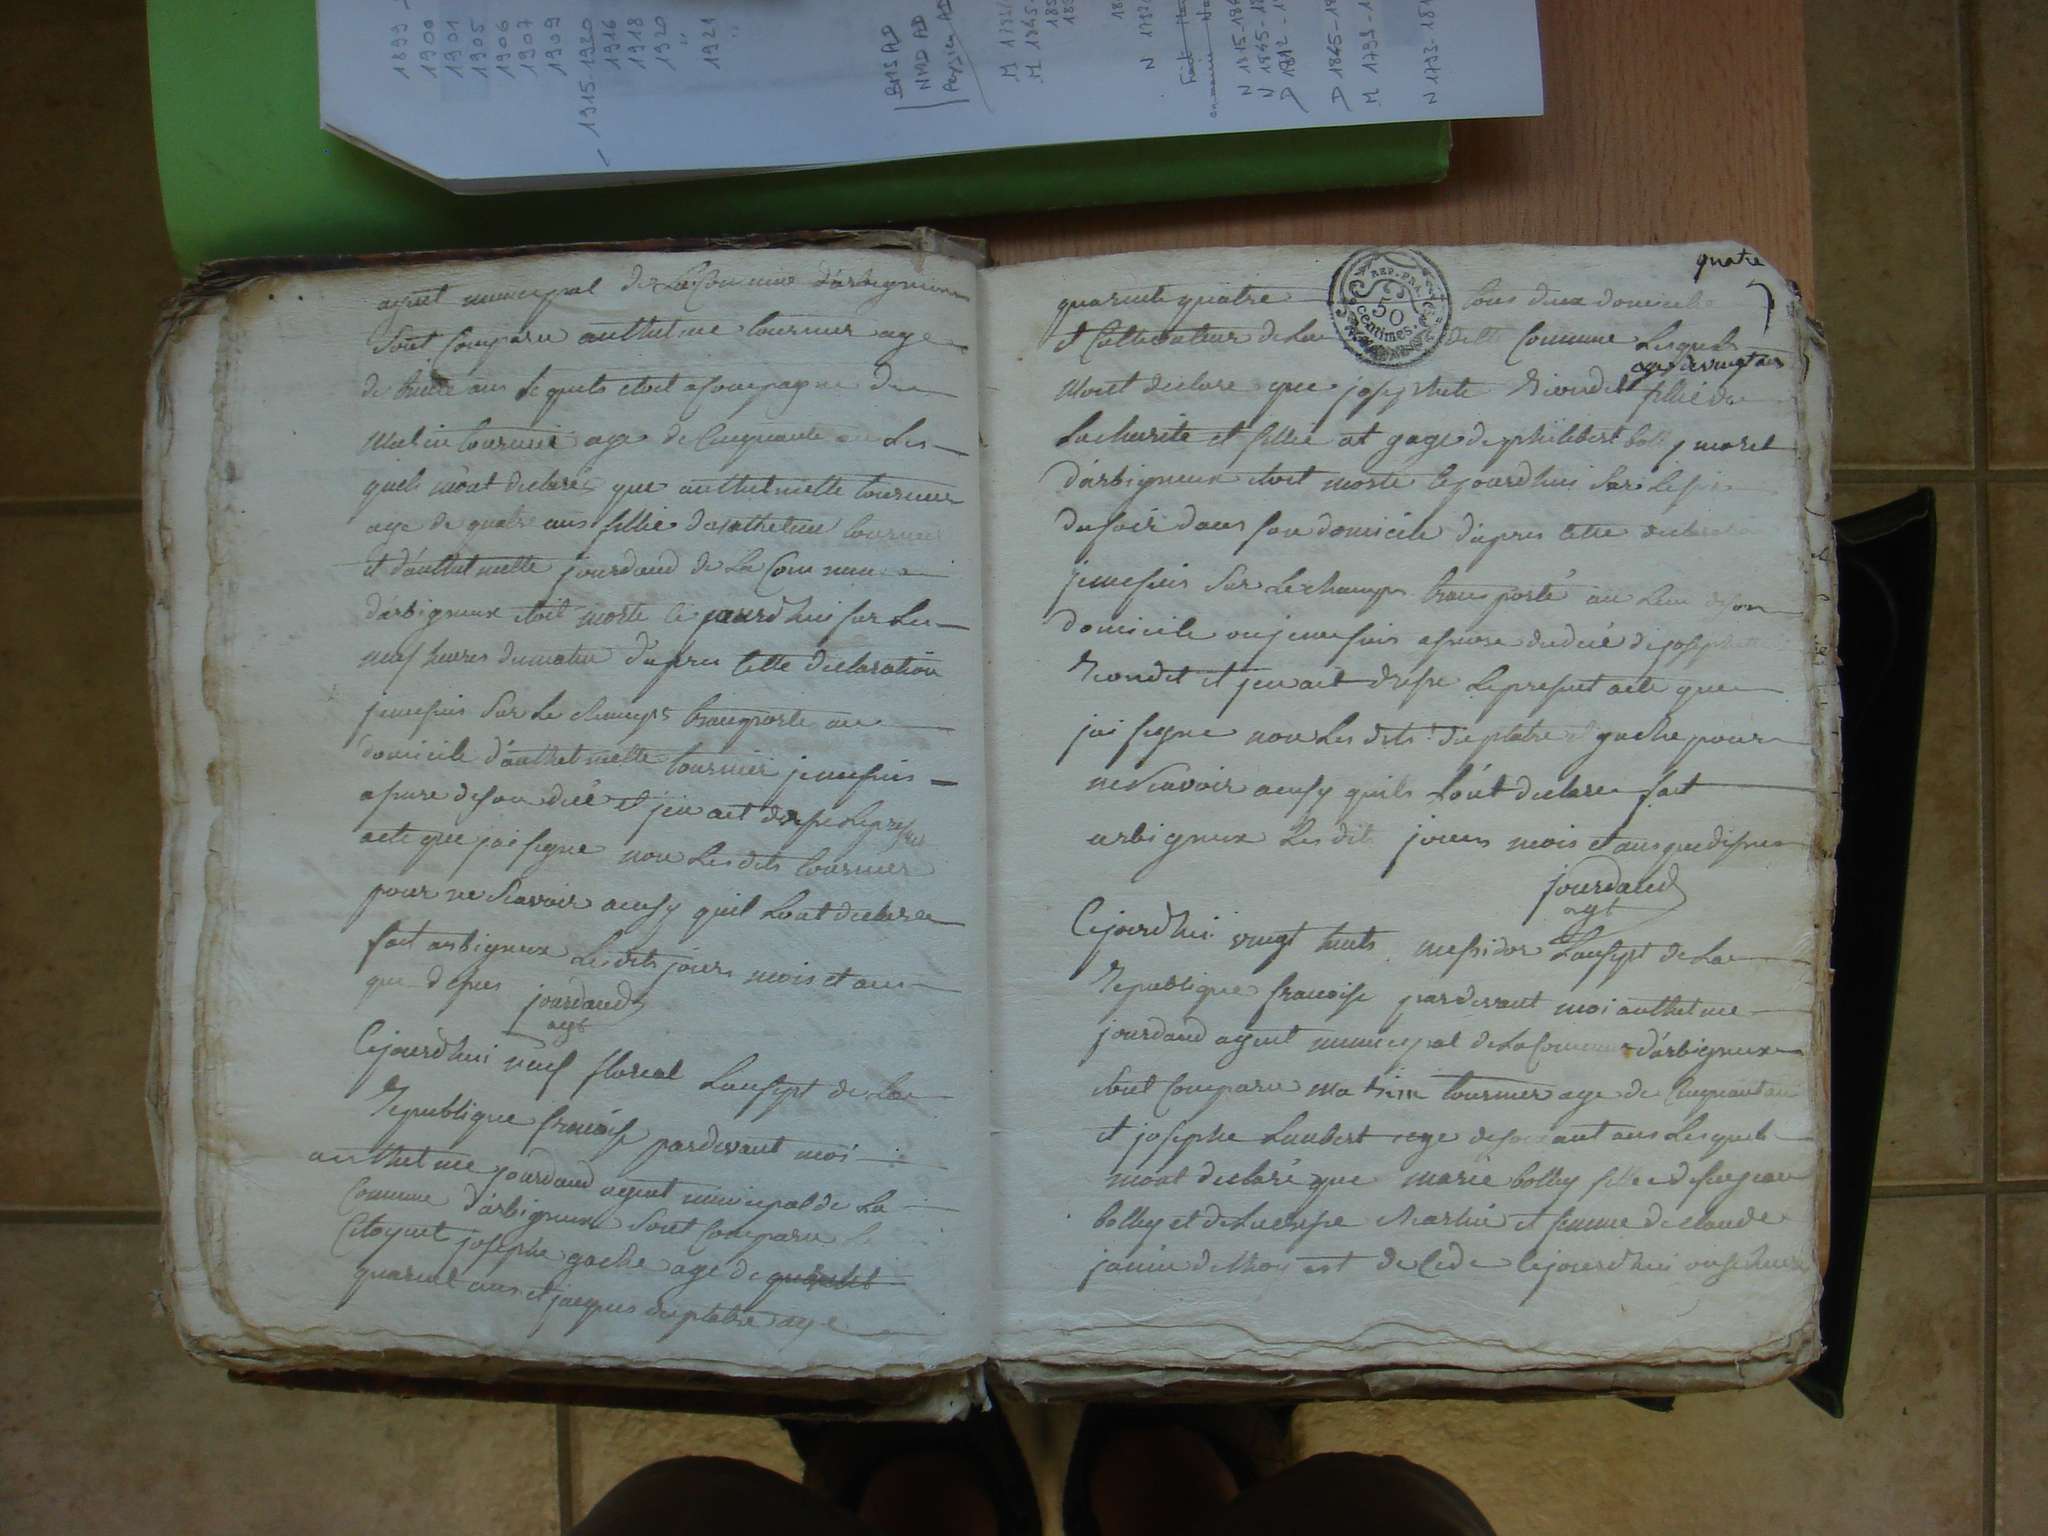 1899
1900
1901
1905
1906
1907
1909
1915-1920
1916
1918
1920
1921
BMS AD
NMD AD
M 1845-
N 1815-18
N 1845-18
D 1812-1
D 1845-18
M 1793-1
N 1793-181
agent municipal de La Commune d'arbigneux
sont Comparu anthelme tournier age
de trente ans Lequels etoit acompagne de
Marin tournie age de Cinquante an Les
quels m'ont declaré que anthelmette tournier
age de quatre ans fillie danthelme tournier
et d'anthelmette jourdand de La Commune
d'arbigneux etoit morte ce jourdhui sur Les
neuf heures du matin d'apres cette declaration
je me suis Sur Le champs transporte au
domicile d'anthelmette tournier je me suis
asure de son décé et j'en ait dresse Le present
acte que jai signe non Les dits tournier
pour ne Scavoir ainsy quil Lont declaree
fait arbigneux Les dits jours mois et ans
que desus jourdand
agt
Cejourdhui neuf floreal Lansept de La
Republique francoise pardevant moi
anthelme jourdand agent municipal de La
Commune d'arbigneux Sont Comparu le
Citoyent josephe gache age de
quarent ans et jacques duplatre age
quatre
7
REP. FRA.
50
centimes.
quarente quatre tous deux domicile
et Cultivateur de La ditte Commune Lesquels
age de vingt ans
Mont declare que josephete Riondet fillie de
La charité et fillie at gage de philibert bolley moret
d'arbigneux etoit morte cejourdhui Sur Le six
du soir dans son domicile d'apres cette declaration
je me suis Sur Le champs transporté au Lieu de son
domicile ou je me suis asurose du décé de josephette
Riondet et jen ait dresse Le present acte que
jai signe non Les dits duplatre et gache pour
ne Scavoir ainsy quils Lont declaree fait
arbigneux Les dits jours mois et ans que desus
jourdand
agt
Cejourdhui vingt huits messidor Lansept de La
Republique francoise pardevant moi anthelme
jourdand agent municipal de La Commune d'arbigneux
Sont Comparu Martin tournier age de Cinquant ans
et josephe Lambert age de soixant ans Lesquels
mont declaré que marie bolley fille de feu jean
bolley et de Lueresse Martin et femme de claude
janin de thoy est de Cede Cejourdhui onse heure